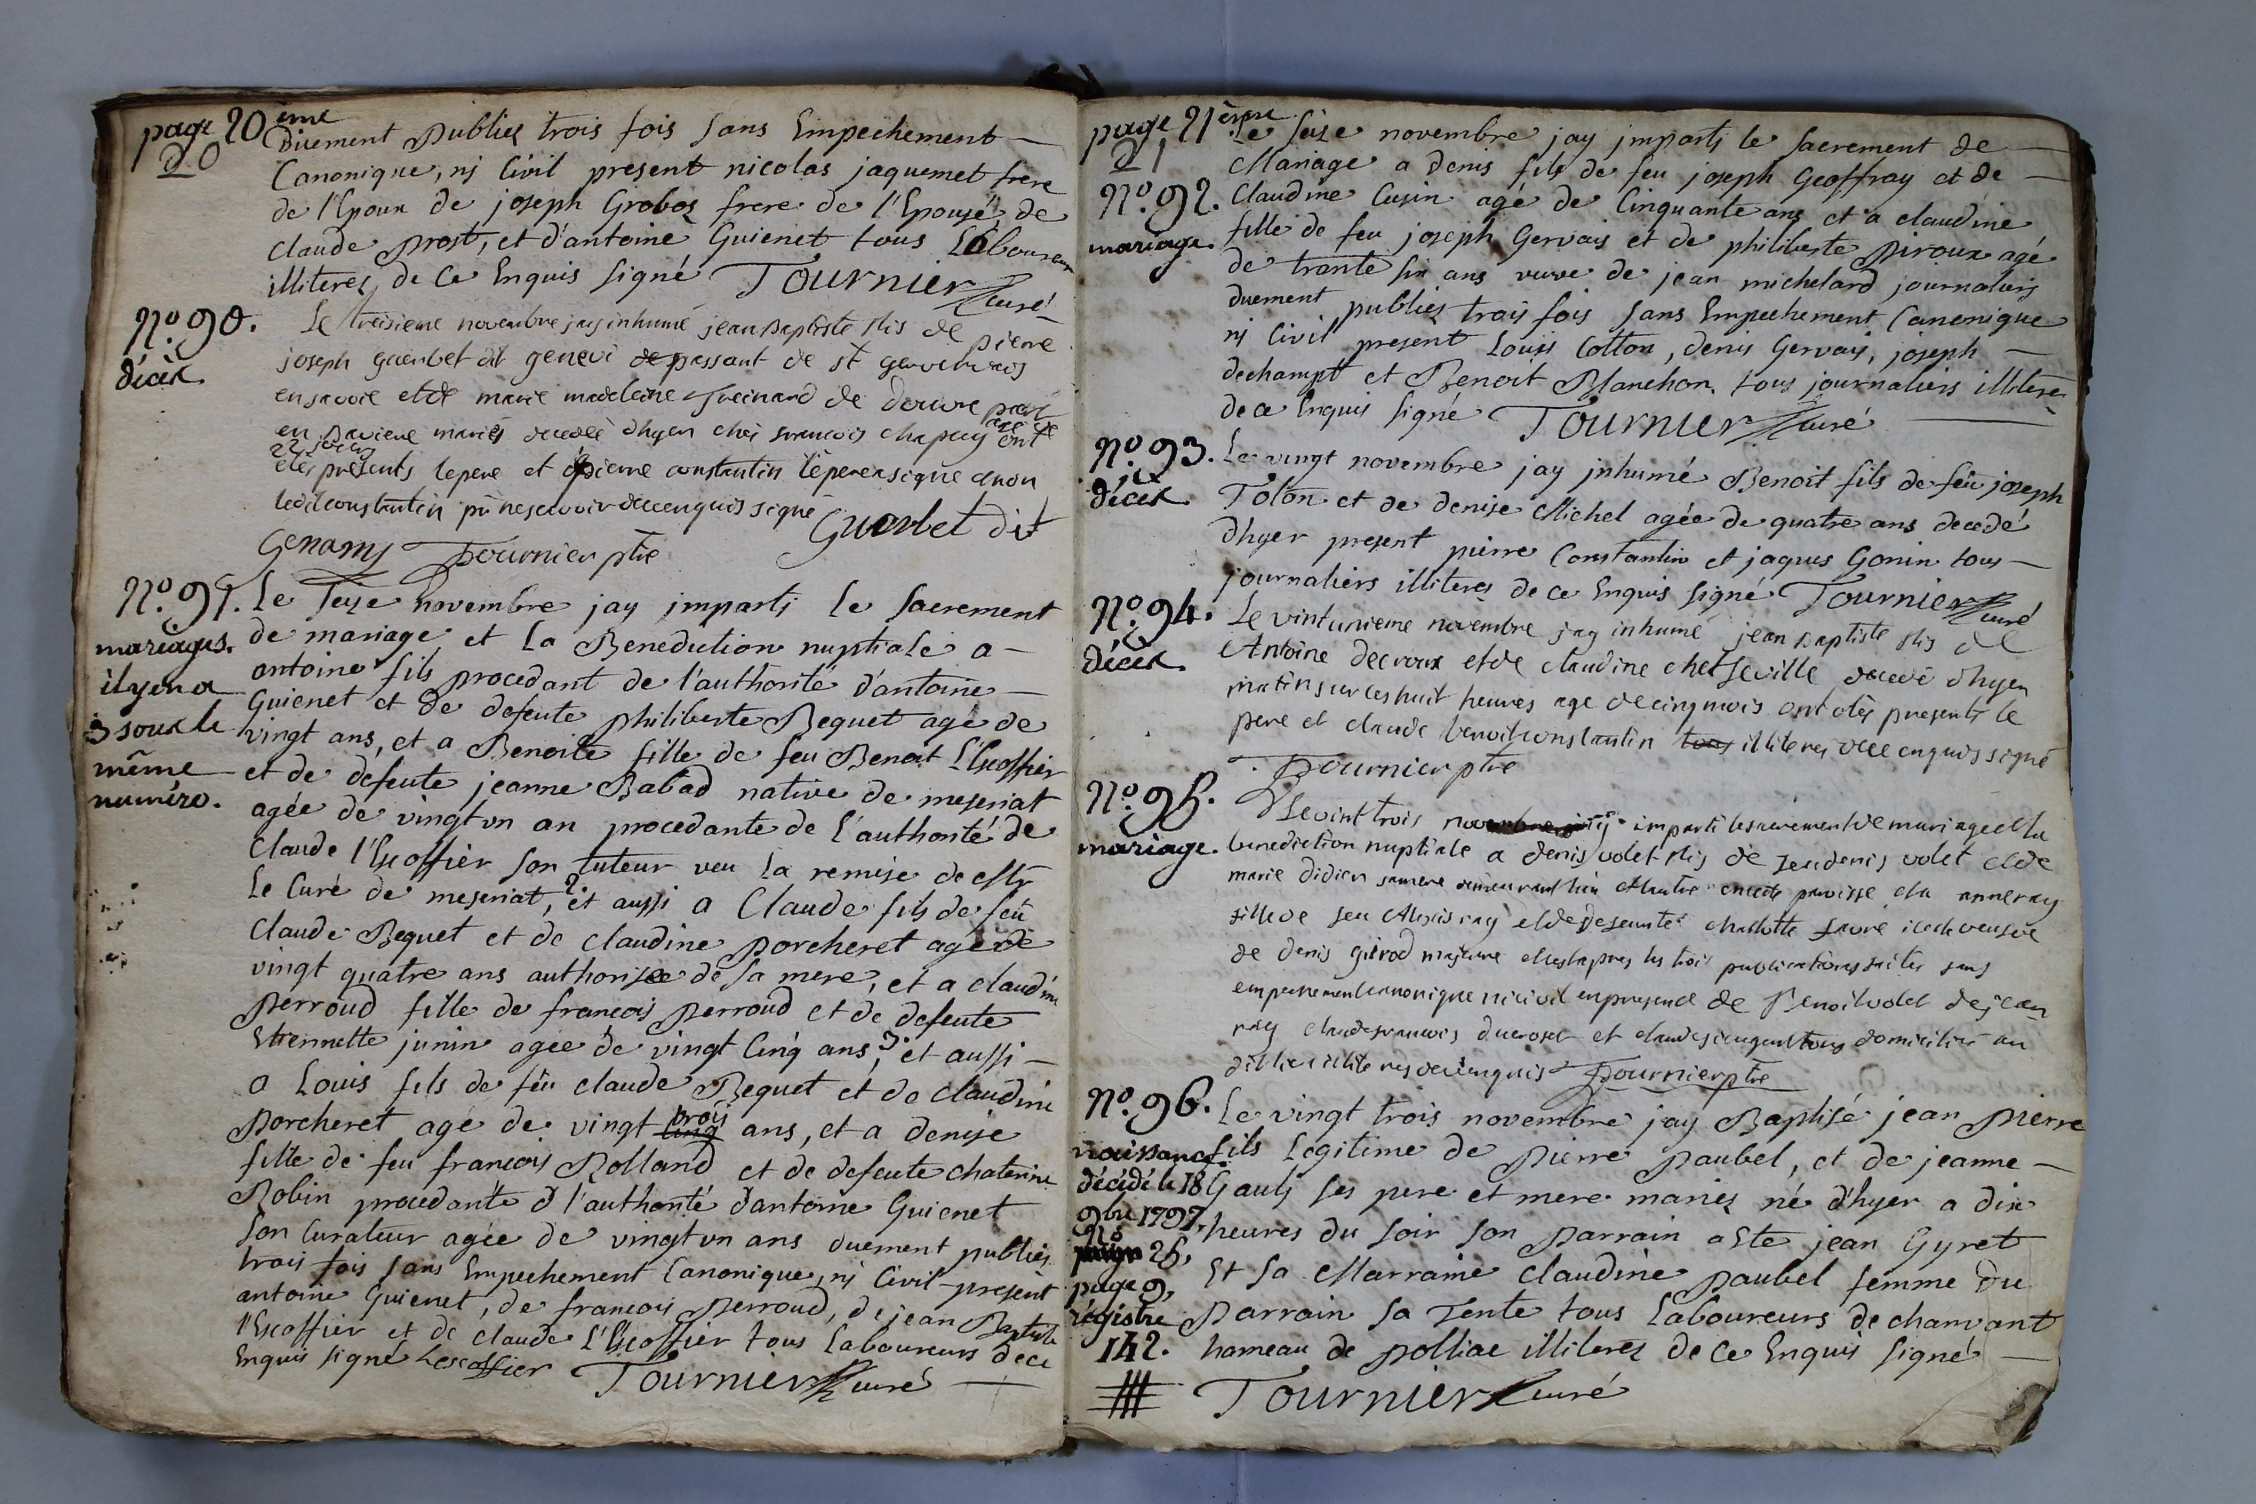 page 20ème
20
Duement Publiez trois fois sans Empechement
Canonique, nj Civil present nicolas jaquemet frere
de l'Epoux de joseph Groboz frere de l'Epousé, de
Claude prost, et d'antoine Guienet tous Laboureurs
illiterez de ce Enquis signé Tournier curé
No. 90.
décès.
Le treisieme novembre jay inhumé jean Baptiste fils de pierre
joseph guerbet dit genevi de passant de st
en savoie et de marie madeleine de
en mariés decedé d'hyer chés francois chapuy agé de
ont
etes présents le pere et pierre constantin le pere a signé et non
ledit constantin pr ne scavoir de ce enquis signé
Guerbet dit
Genamy Tournier ptre
No. 91.
mariages.
il y en a
3 sous le
même
numéro.
Le seize novembre jay impartj le sacrement
de mariage et la Benediction nuptiale a
antoine fils procedant de l'authorité d'antoine
Guienet et de defeute philiberte Bequet agé de
vingt ans, et a Benoite fille de feu Benoit L'Escoffier
et de defeute jeanne Babad native de meseriat
agée de vingt un an procedante de l'authorité de
Claude l'Escoffier son tuteur veu la remise de Mr
Le Curé de meseriat, 2 et aussi a Claude fils de feu
Claude Bequet et de claudine porcheret agé de
vingt quatre ans authorisee de sa mere, et a claudine
perroud fille de francois perroud et de defeute
Etiennette junin agée de vingt Cinq ans, 3 et aussi
a Louis fils de feu claude Bequet et de claudine
porcheret agé de vingt cinq trois ans, et a denise
fille de feu francois Rolland et de defeute chaterine
Robin procedante d l'authorité d'antoine Guienet
son Curateur agée de vingt un ans duement publiés
trois fois sans Empechement Canonique, nj Civil present
antoine Guienet, de francois perroud, de jean Baptiste
l'Escoffier et de claude l'Escoffier tous Laboureurs de ce
Enquis signé Lescoffier Tournier curé
page 21ème
21
No. 92.
mariage.
Le seize novembre jay impartj le sacrement de
Mariage a denis fils de feu joseph Geoffray et de
Claudine Cusin agé de Cinquante ans et a claudine
fille de feu joseph Gervais et de philiberte piroux agé
de trante six ans veuve de jean michelard journaliers
duement publiés trois fois sans Empechement Canonique
nj Civil present Louis Cotton, denis Gervais, joseph
dechampt et Benoit Blanchon tous journaliers illiterez
de ce Enquis signé Tournier curé
No. 93.
décès.
Le vingt novembre jay inhumé Benoit fils de feu joseph
Tolon et de denise Michel agée de quatre ans decedé
d'hyer present pierre Constantin et jaques Gonin tous
journaliers illiteres de ce Enquis signé Tournier curé
No. 94.
décès.
Le vintunieme novembre jay inhumé jean Baptiste fils de
Antoine decroux et de claudine decedé d'hyer
matin sur les huit heures agé de cinq mois ont etés presents le
pere et claude benoit constantin tous illiteres de ce enquis signé
Tournier ptre
No. 95.
mariage.
Le vint trois novembre jay imparti le sacrement de mariage et la
benediction nuptiale a denis volet fils de feu denis volet et de
marie didier sa mere paroisse et a anne ray
fille de feu Alexis ray et de defeunte charlotte favre icelle veufve
de denis girod majeure apres les trois publications faites sans
empechement canonique ni civil en presence de Benoit volet de jean
ray claude francois ducroset et claude tous domicilies au
dit lieu illiteres de ce enquis Tournier ptre
No. 96.
naissance.
décédé le 18
9bre 1797,
No
page 25,
page 9,
régistre
142.
Le vingt trois novembre jay Baptisé jean pierre
fils Legitime de pierre paubel, et de jeanne
Gautj ses pere et mere mariez né d'hyer a dix
heures du soir son parrain a Ete jean Gyret
Et sa Marraine Claudine paubel femme du
parrain sa tente tous Laboureurs de chamant
hameau de polliac illiterez de ce Enquis signé
Tournier curé